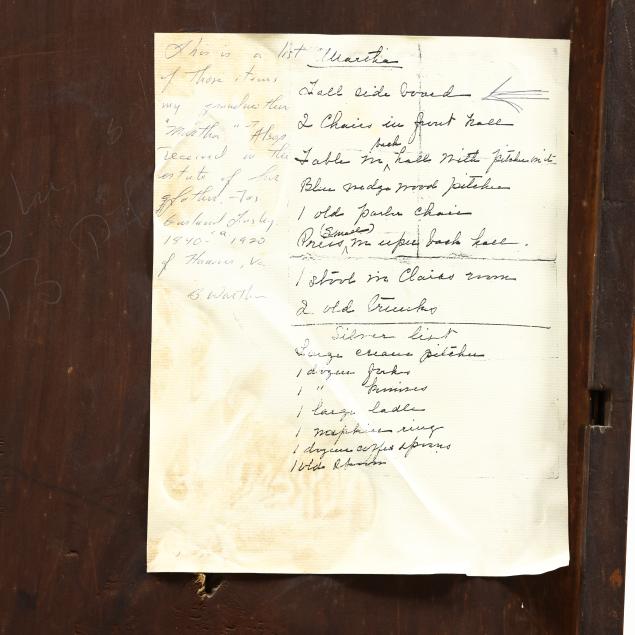 This is a list
of those items
my grandmother
"Martha" Alsop
received in the
estate of her
gfather, Jas
Garland Hurley
1840 - 1920
of Hanover, Va
B Warthen
Martha
Tall side board
2 Chairs in front hall
Table in back hall with pitcher in it
Blue wedgewood pitcher
1 old parlor chair
Press (Small) in upper back hall.
1 stool in Claras room
2 old trunks
Silver list
Large cream pitcher
1 dozen forks
1 " knives
1 large ladle
1 napkin ring
1 dozen coffee spoons
1 old